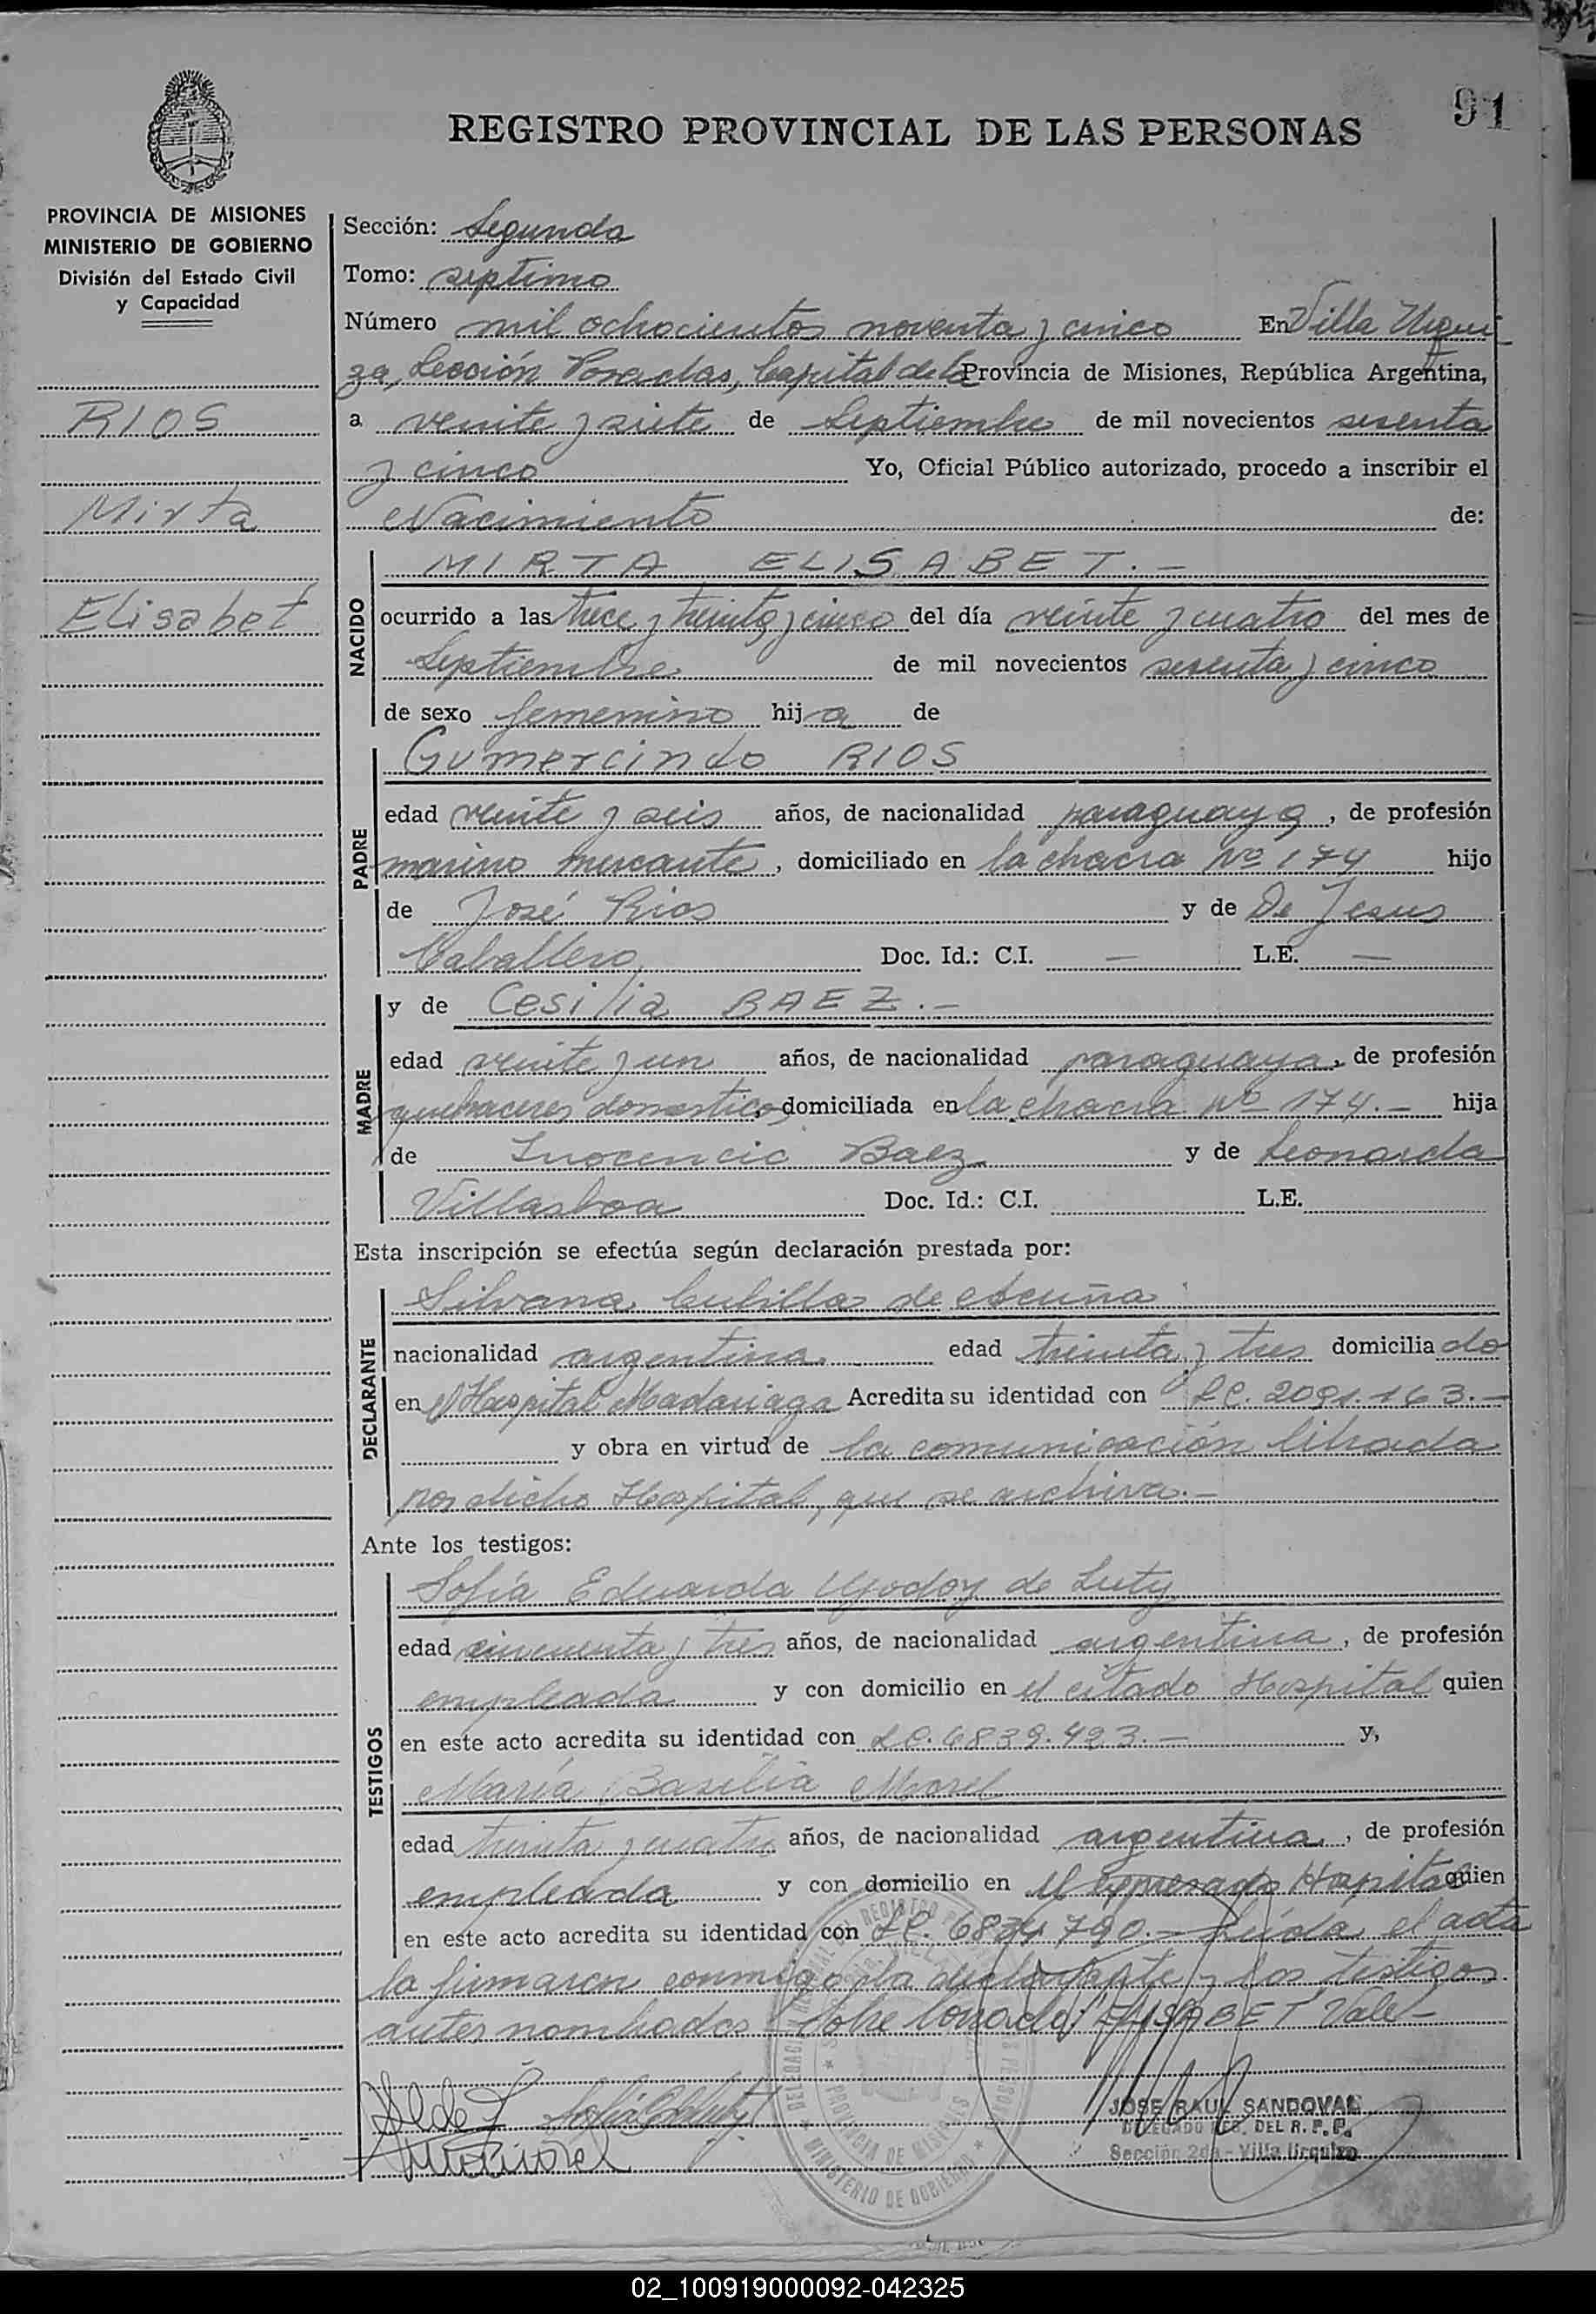 91
REGISTRO PROVINCIAL DE LAS PERSONAS
PROVINCIA DE MISIONES
MINISTERIO DE GOBIERNO
División del Estado Civil
y Capacidad
RIOS
Mirta
Elisabet
Sección: Segunda
Tomo: septimo
Número mil ochocientos noventa y cinco En Villa Urqui
za, Sección Posadas, Capital de la Provincia de Misiones, República Argentina,
a veinte y siete de Septiembre de mil novecientos sesenta
y cinco Yo, Oficial Público autorizado, procedo a inscribir el
Nacimiento de:
NACIDO
MIRTA ELISABET.-
ocurrido a las trece y treinta y cinco del día veinte y cuatro del mes de
Septiembre de mil novecientos sesenta y cinco
de sexo femenino hija de
PADRE
Gumercindo RIOS
edad veinte y seis años, de nacionalidad paraguaya, de profesión
marino mercante, domiciliado en la chacra Nº 174 hijo
de José Rios y de De Jesus
Caballero Doc. Id.: C.I. — L.E. —
MADRE
y de Cesilia BAEZ.-
edad veinte y un años, de nacionalidad paraguaya, de profesión
quehaceres domesticos domiciliada en la chacra Nº 174.- hija
de Inocencio Baez y de Leonarda
Villasboa Doc. Id.: C.I. L.E.
Esta inscripción se efectúa según declaración prestada por:
DECLARANTE
Silvana Cubilla de Acuña
nacionalidad argentina edad treinta y tres domiciliado
en el Hospital Madariaga Acredita su identidad con LC. 2091.163.-
y obra en virtud de la comunicación librada
por dicho Hospital, que se archiva.-
Ante los testigos:
TESTIGOS
Sofía Eduarda Godoy de Luty
edad cincuenta y tres años, de nacionalidad argentina, de profesión
empleada y con domicilio en el citado Hospital quien
en este acto acredita su identidad con LC. 6839.423.- y,
María Basilia Morel
edad treinta y cuatro años, de nacionalidad argentina, de profesión
empleada y con domicilio en el expresado Hospital quien
en este acto acredita su identidad con LC. 6834790.- Leída el acta
la firmaron conmigo la declarante y los testigos
antes nombrados Sobre borrado "ELISABET" Vale-
JOSE RAUL SANDOVAL
DELEGADO DEL R. P. P.
Sección 2da - Villa Urquiza
PROVINCIA DE MISIONES
MINISTERIO DE GOBIERNO
02_100919000092-042325